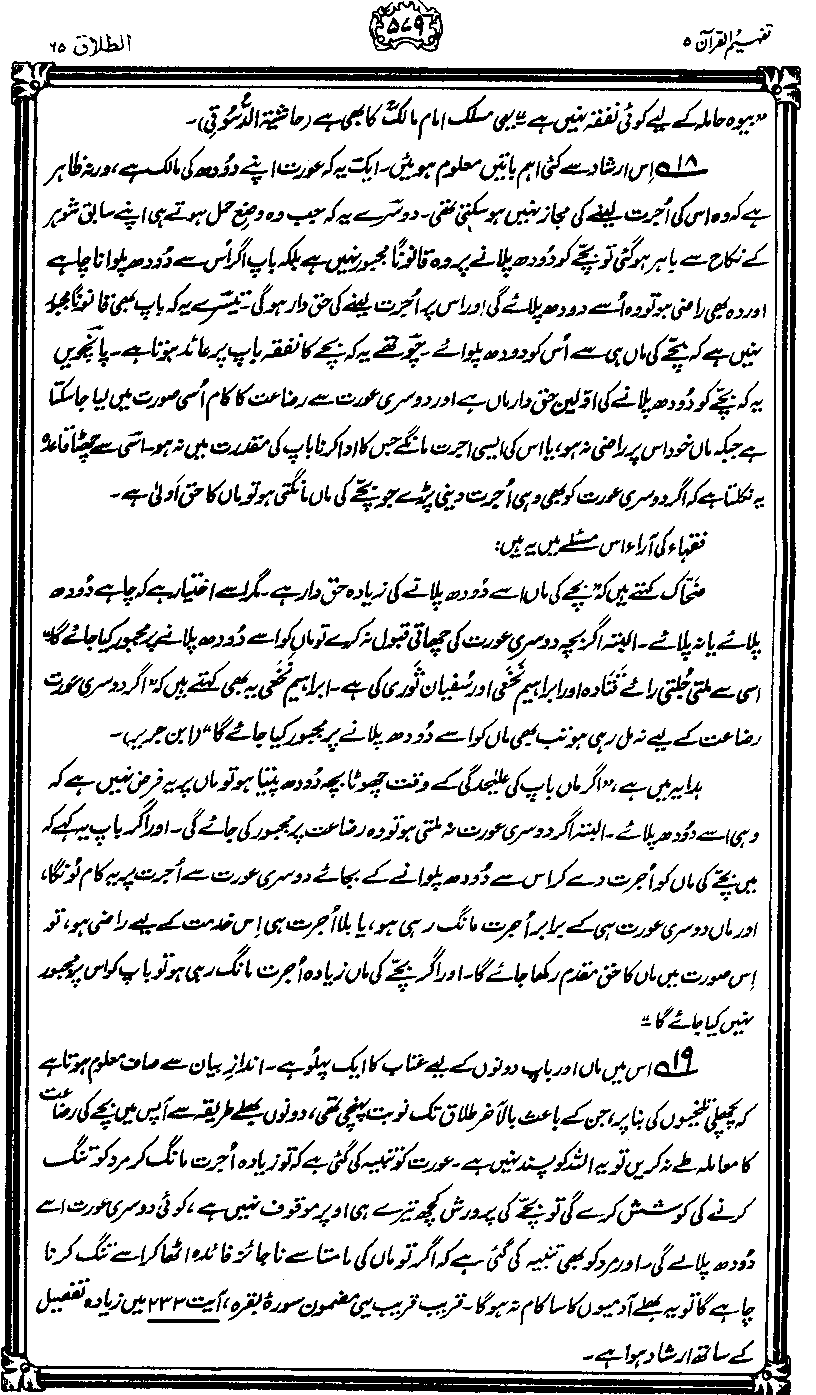 تفہیم القرآن ۵
۵۷۹
الطلاق ۶۵
”بیوہ حاملہ کے لیے کوئی نفقہ نہیں ہے“ یہی مسلک امام مالکؒ کا بھی ہے (حاشیۃ الدُّسوقی)۔
۱۸؎ اِس ارشاد سے کئی اہم باتیں معلوم ہوئیں۔ ایک یہ کہ عورت اپنے دُودھ کی مالک ہے، ورنہ ظاہر
ہے کہ وہ اس کی اُجرت لینے کی مجاز نہیں ہو سکتی تھی۔ دوسرے یہ کہ جب وہ وضعِ حمل ہوتے ہی اپنے سابق شوہر
کے نکاح سے باہر ہوگئی تو بچّے کو دُودھ پلانے پر وہ قانوناً مجبور نہیں ہے بلکہ باپ اگر اُس سے دُودھ پلوانا چاہے
اور وہ بھی راضی ہو تو وہ اُسے دودھ پلائے گی اور اس پر اُجرت لینے کی حق دار ہوگی۔ تیسرے یہ کہ باپ بھی قانوناً مجبور
نہیں ہے کہ بچّے کی ماں ہی سے اُس کو دودھ پلوائے۔ چوتھے یہ کہ بچے کا نفقہ باپ پر عائد ہوتا ہے۔ پانچویں
یہ کہ بچّے کو دُودھ پلانے کی اوّلین حق دار ماں ہے اور دوسری عورت سے رضاعت کا کام اُسی صورت میں لیا جا سکتا
ہے جبکہ ماں خود اس پر راضی نہ ہو، یا اس کی ایسی اجرت مانگے جس کا ادا کرنا باپ کی مقدرت میں نہ ہو۔ اسی سے چھٹا قاعدہ
یہ نکلتا ہے کہ اگر دوسری عورت کو بھی وہی اُجرت دینی پڑے جو بچّے کی ماں مانگتی ہو تو ماں کا حق اَولیٰ ہے۔
فقہاء کی آراء اس مسئلے میں یہ ہیں:
ضحّاک کہتے ہیں کہ ”بچّے کی ماں اسے دُودھ پلانے کی زیادہ حق دار ہے۔ مگر اسے اختیار ہے کہ چاہے دُودھ
پلائے یا نہ پلائے۔ البتہ اگر بچہ دوسری عورت کی چھاتی قبول نہ کرے تو ماں کو اسے دُودھ پلانے پر مجبور کیا جائے گا“
اسی سے ملتی جُلتی رائے قَتادہ اور ابراہیم نَخَعی اور سُفیان ثَوری کی ہے۔ ابراہیم نَخَعی یہ بھی کہتے ہیں کہ ”اگر دوسری عورت
رضاعت کے لیے نہ مل رہی ہو تب بھی ماں کو اسے دُودھ پلانے پر مجبور کیا جائے گا“ (ابن جریر)۔
ہدایہ میں ہے، ”اگر ماں باپ کی علیحدگی کے وقت چھوٹا بچہ دُودھ پیتا ہو تو ماں پر یہ فرض نہیں ہے کہ
وہی اسے دُودھ پلائے۔ البتہ اگر دوسری عورت نہ ملتی ہو تو وہ رضاعت پر مجبور کی جائے گی۔ اور اگر باپ یہ کہے کہ
میں بچّے کی ماں کو اُجرت دے کر اس سے دُودھ پلوانے کے بجائے دوسری عورت سے اُجرت پر یہ کام لُونگا،
اور ماں دوسری عورت ہی کے برابر اُجرت مانگ رہی ہو، یا بلا اُجرت ہی اِس خدمت کے لیے راضی ہو، تو
اِس صورت میں ماں کا حق مقدم رکھا جائے گا۔ اور اگر بچّے کی ماں زیادہ اُجرت مانگ رہی ہو تو باپ کو اس پر مجبور
نہیں کیا جائے گا“
۱۹؎ اس میں ماں اور باپ دونوں کے لیے عتاب کا ایک پہلُو ہے۔ اندازِ بیان سے صاف معلوم ہوتا ہے
کہ پچھلی تلخیوں کی بنا پر، جن کے باعث بالآخر طلاق تک نوبت پہنچی تھی، دونوں بھلے طریقہ سے آپس میں بچّے کی رضاعت
کا معاملہ طے نہ کریں تو یہ اللہ کو پسند نہیں ہے۔ عورت کو تنبیہ کی گئی ہے کہ تو زیادہ اُجرت مانگ کر مرد کو تنگ
کرنے کی کوشش کرے گی تو بچّے کی پرورش کچھ تیرے ہی اوپر موقوف نہیں ہے، کوئی دوسری عورت اسے
دُودھ پلالے گی۔ اور مرد کو بھی تنبیہ کی گئی ہے کہ اگر تو ماں کی مامتا سے ناجائز فائدہ اٹھا کر اسے تنگ کرنا
چاہے گا تو یہ بھلے آدمیوں کا سا کام نہ ہوگا۔ قریب قریب یہی مضمون سورۂ بقرہ، آیت ۲۳۳ میں زیادہ تفصیل
کے ساتھ ارشاد ہوا ہے۔